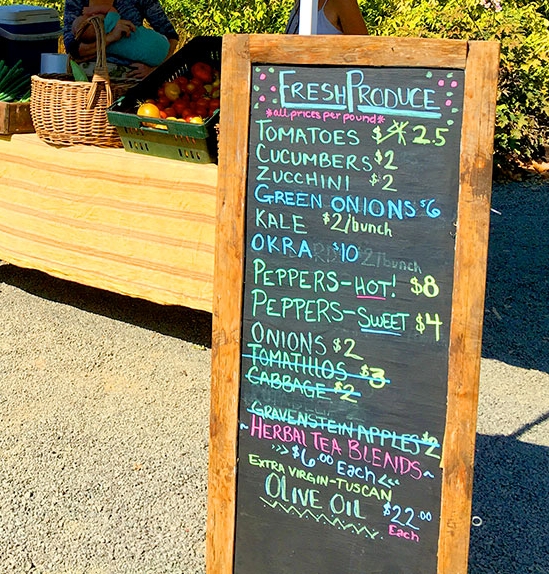 FRESH PRODUCE
*all prices per pound*
TOMATOES $4 2.5
CUCUMBERS $2
ZUCCHINI $2
GREEN ONIONS $6
KALE $2/bunch
OKRA $10 $2/bunch
PEPPERS-HOT! $8
PEPPERS-SWEET $4
ONIONS $2
TOMATILLOS $3
CABBAGE $2
GRAVENSTEIN APPLES $2
~HERBAL TEA BLENDS~
>>>$6.00 Each<<<
EXTRA VIRGIN-TUSCAN
OLIVE OIL $22.00
Each